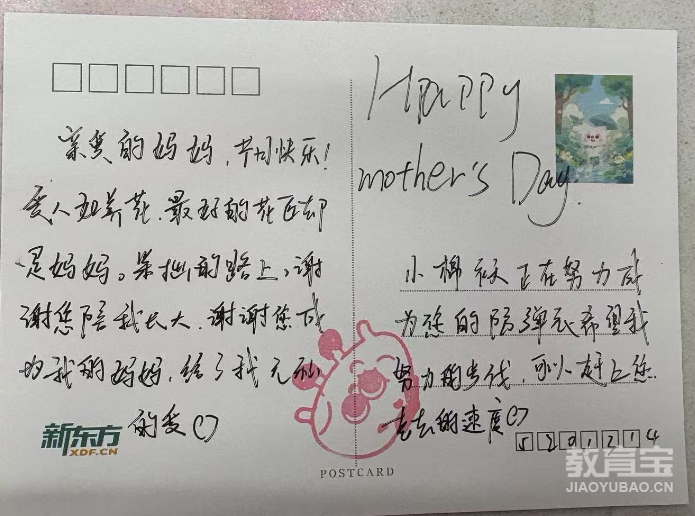 亲爱的妈妈,节日快乐!
爱人如养花.最好的花匠却
是妈妈。笨拙的路上,谢
谢您陪我长大.谢谢您成
为我的妈妈,给了我无私
的爱
新东方
XDF.CN
Happy
mother's Day.
小棉袄正在努力成
为您的防弹衣希望我
努力的步伐,可以赶上您
老去的速度
5201214
POSTCARD
教育宝
JIAOYUBAO.CN